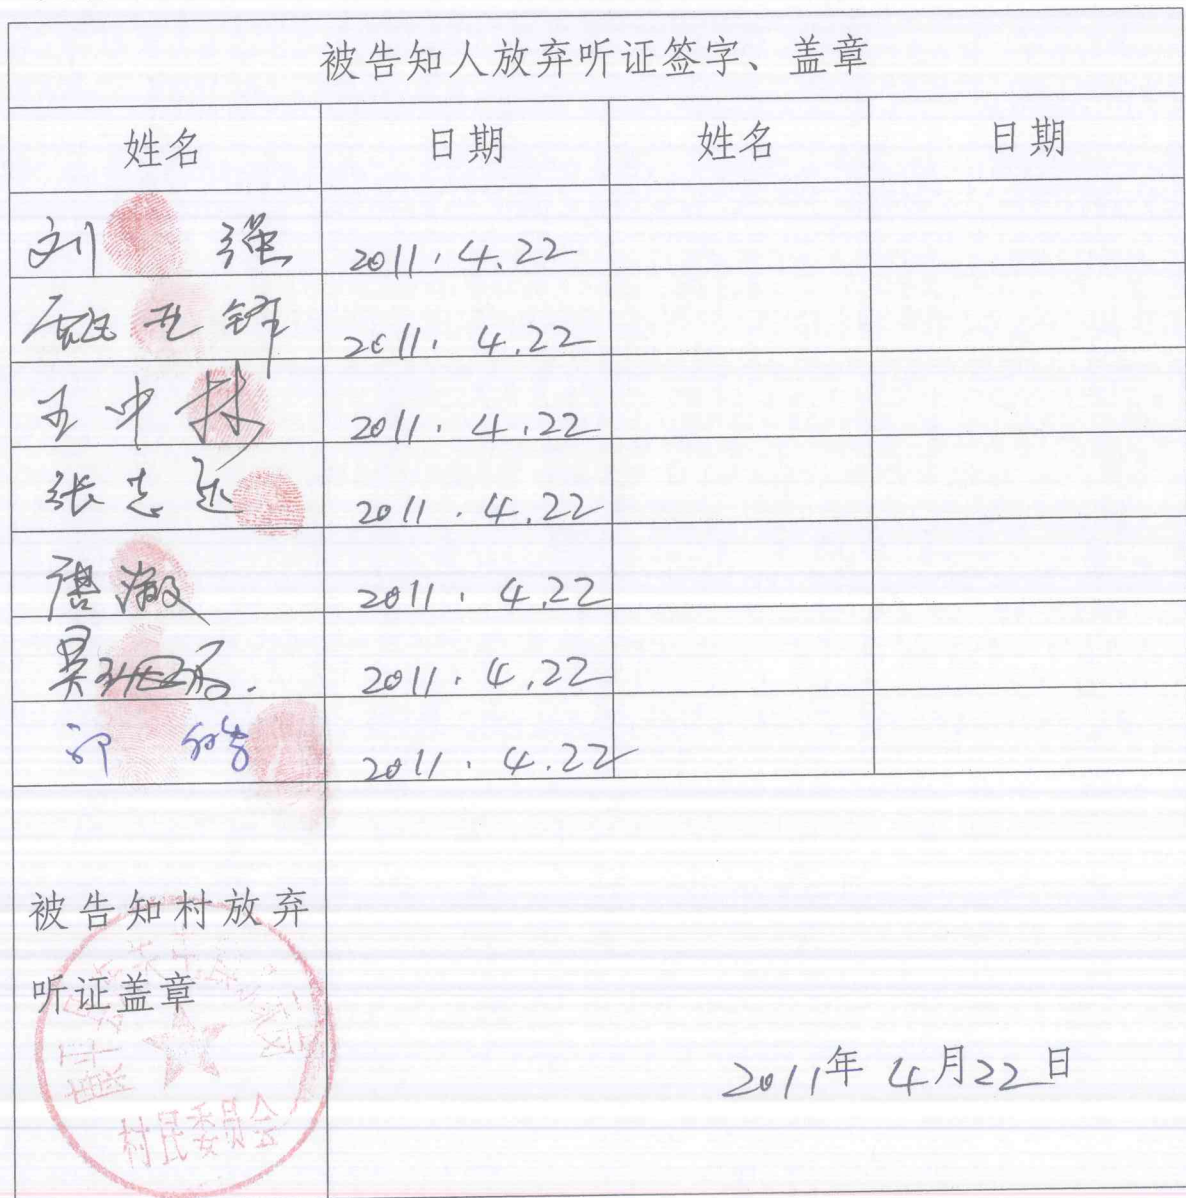 被告知人放弃听证签字、盖章
姓名 日期 姓名 日期
刘强 2011.4.22
2011.4.22
王中林 2011.4.22
张志远 2011.4.22
唐激 2011.4.22
吴 2011.4.22
2011.4.22
被告知村放弃
听证盖章
村民委员会
2011年4月22日